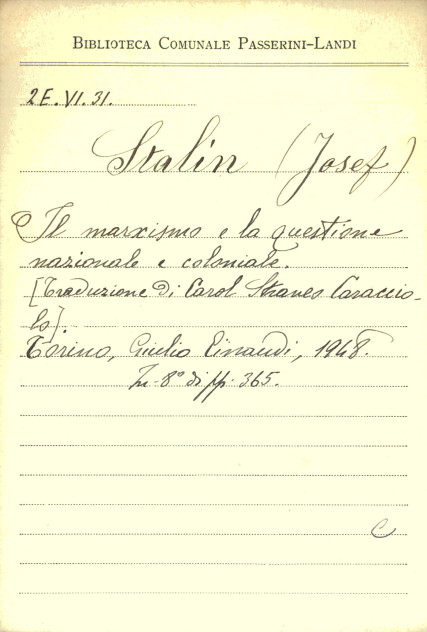 BIBLIOTECA COMUNALE PASSERINI-LANDI
2E.VI.31.
Stalin (Josef)
Il marxismo e la questione
nazionale e coloniale.
[Traduzione di Carol Straneo Caraccio-
lo].
Torino, Giulio Einaudi, 1948.
In-8° di pp. 365.
C